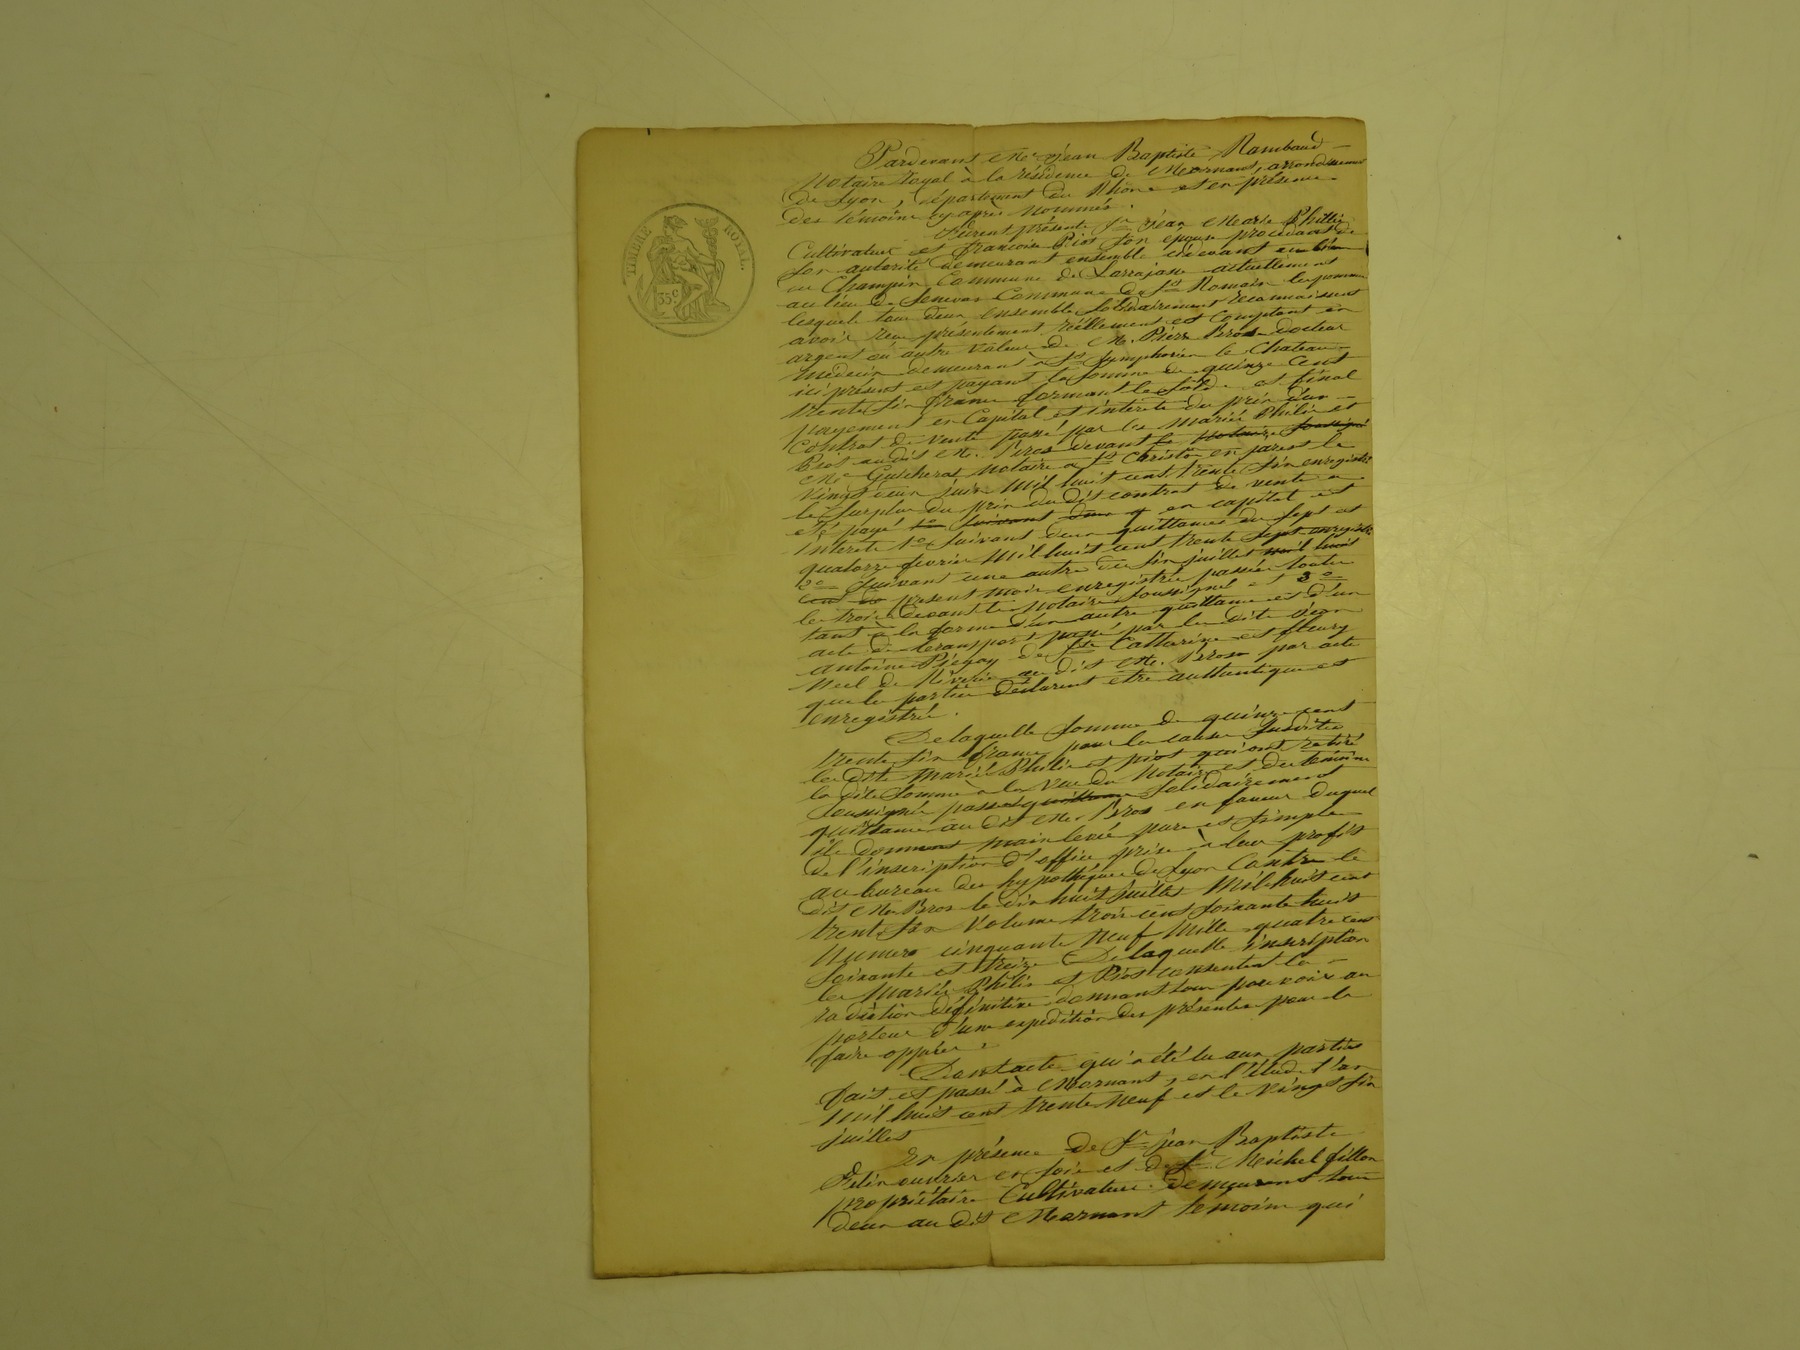 TIMBRE ROYAL.
35c
Pardevant Me jean Baptiste Rambaud
Notaire royal à la résidence de Mornant, arrondissement
de Lyon, département du Rhône et en présence
des témoins cy après nommés.
Furent présents Sr jean Marie Philis
Cultivateur et françoise Piot son épouse procédant de
son autorité demeurant ensemble cidevant
au Champin Commune de Larrajasse actuellement
au lieu de Senevas Commune de St Romain
lesquels tous deux ensemble solidairement reconnaissent
avoir reçu présentement réellement et comptant en
argent ou autre valeur de M. Pierre Bros docteur
médecin demeurant à St Symphorien le Chateau
ici présent et payant la somme de quinze cent
trente six francs formant le solde et final
payement en Capital et intérets du prix d'un
Contrat de vente passé par les mariés Philis et
Piot au dit M. Bros devant le Notaire soussigné
Me Guicherat Notaire a St Christo en jarest le
vingt deux juin mil huit cent trente six enregistré
le surplus du prix du dit contrat de vente a
été payé 1o suivant deux en capital et
interets 1o suivant deux quittances des sept et
quatorze fevrier mil huit cent trente sept enregistrées
2o suivant une autre du six juillet mil huit
cent du présent mois enregistrée passées toutes
les trois devant le Notaire soussigné et 3o
tant à la forme d'un autre quittance et d'un
acte de transport passé par les dits Jean
antoine Piégay de Ste Catherine et fleury
Neel de Riverie au dit M. Bros par acte
que les parties déclarent etre authentique et
enregistrés.
De laquelle somme de quinze cent
trente six francs pour les causes susdites
les dits mariés Philis et piot qui ont retiré
la dite somme à la vue du Notaire et des témoins
soussignés passent quittance solidairement
quittance au dit Mr Bros en faveur duquel
ils donnent main levée pure et simple
de l'inscription d'office prise à leur profit
au bureau des hypothèques de Lyon Contre le
dit Mr Bros le dix huit juillet mil huit cent
trente six Volume trois cent soixante huit
Numero cinquante neuf mille quatre cent
soixante et treize De laquelle inscription
les mariés Philis et Piot consentent la
radiation définitive donnant tous pouvoirs au
porteur d'une expédition des présentes pour la
faire opérer.
Dont acte qui a été lu aux parties
fait et passé à Mornant, en l'étude l'an
mil huit cent trente neuf et le vingt six
juillet
En présence de Sr jean Baptiste
ouvrier en soie et de Sr Michel fillon
propriétaire Cultivateur demeurant tous
deux au dit Mornant témoins qui